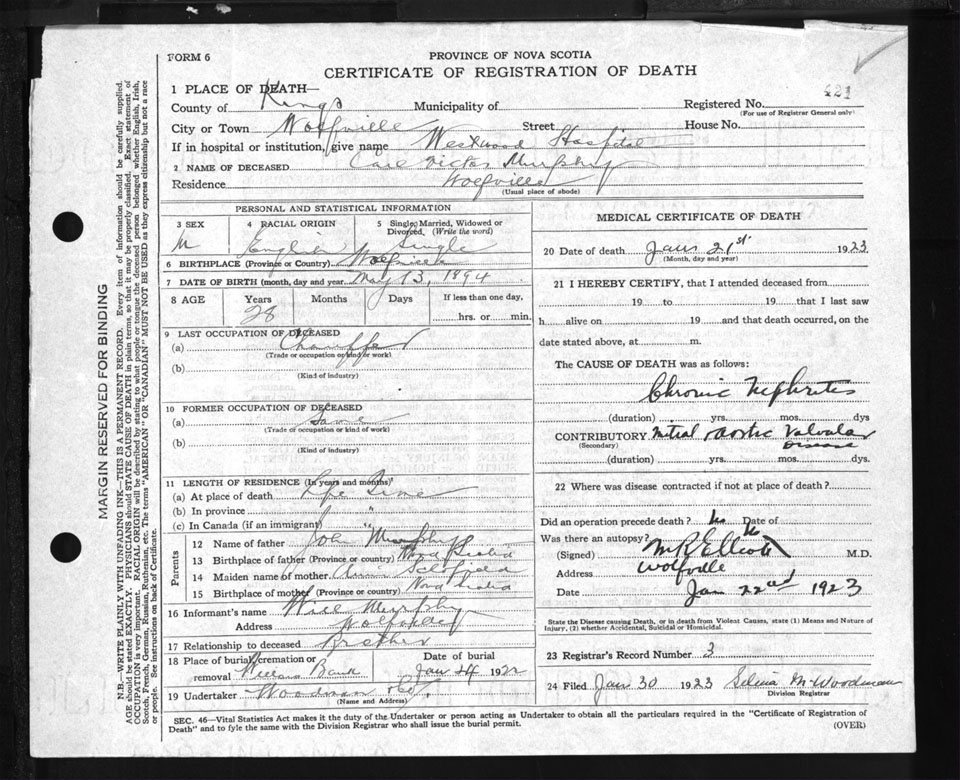 FORM 6
PROVINCE OF NOVA SCOTIA
CERTIFICATE OF REGISTRATION OF DEATH
421
1 PLACE OF DEATH—
County of Kings Municipality of Registered No.
(For use of Registrar General only)
City or Town Wolfville Street House No.
If in hospital or institution, give name Westwood Hospital
2 NAME OF DECEASED Carl Victor Murphy
Residence Wolfville
(Usual place of abode)
PERSONAL AND STATISTICAL INFORMATION
3 SEX 4 RACIAL ORIGIN 5 Single, Married, Widowed or Divorced, (Write the word)
M English Single
6 BIRTHPLACE (Province or Country) Wolfville
7 DATE OF BIRTH (month, day and year) May 13, 1894
8 AGE Years Months Days If less than one day,
28 hrs. or min.
9 LAST OCCUPATION OF DECEASED
(a) Chauffer
(Trade or occupation or kind or work)
(b)
(Kind of industry)
10 FORMER OCCUPATION OF DECEASED
(a) Same
(Trade or occupation or kind of work)
(b)
(Kind of industry)
11 LENGTH OF RESIDENCE (In years and months)
(a) At place of death Life Time
(b) In province "
(c) In Canada (if an immigrant) "
Parents
12 Name of father John Murphy
13 Birthplace of father (Province or country) Nova Scotia
14 Maiden name of mother Schofield
15 Birthplace of mother (Province or country) Nova Scotia
16 Informant's name Will Murphy
Address Wolfville
17 Relationship to deceased Brother
18 Place of burial, cremation or removal Date of burial
Jan 24 1922
19 Undertaker Woodman
(Name and Address)
MEDICAL CERTIFICATE OF DEATH
20 Date of death Jan 21st 1923
(Month, day and year)
21 I HEREBY CERTIFY, that I attended deceased from
19 to 19 that I last saw
h alive on 19 and that death occurred, on
date stated above, at m.
The CAUSE OF DEATH was as follows:
Chronic Nephritis
(duration) yrs. mos. dys
CONTRIBUTORY Mitral Aortic Valvular
(Secondary) Disease
(duration) yrs. mos. dys.
22 Where was disease contracted if not at place of death?
Did an operation precede death? No Date of
Was there an autopsy? No
(Signed) M R Elliott M.D.
Address Wolfville
Date Jan 22nd 1923
State the Disease causing Death, or in death from Violent Causes, state (1) Means and Nature of
Injury, (2) whether Accidental, Suicidal or Homicidal.
23 Registrar's Record Number 3
24 Filed Jan 30 1923 Selina M Woodman
Division Registrar
SEC. 46—Vital Statistics Act makes it the duty of the Undertaker or person acting as Undertaker to obtain all the particulars required in the "Certificate of Registration of
Death" and to fyle the same with the Division Registrar who shall issue the burial permit.
(OVER)
MARGIN RESERVED FOR BINDING
N.B.—WRITE PLAINLY WITH UNFADING INK—THIS IS A PERMANENT RECORD. Every item of information should be carefully supplied.
AGE should be stated EXACTLY. PHYSICIANS should STATE CAUSE OF DEATH in plain terms, so that it may be properly classified. Exact statement of
OCCUPATION is very important. RACIAL ORIGIN will be described by stating to what people or tongue the deceased person belonged whether English, Irish,
Scotch, French, German, Russian, Ruthenian, etc. The terms "AMERICAN" or "CANADIAN" MUST NOT BE USED as they express citizenship but not a race
or people. See instructions on back of Certificate.